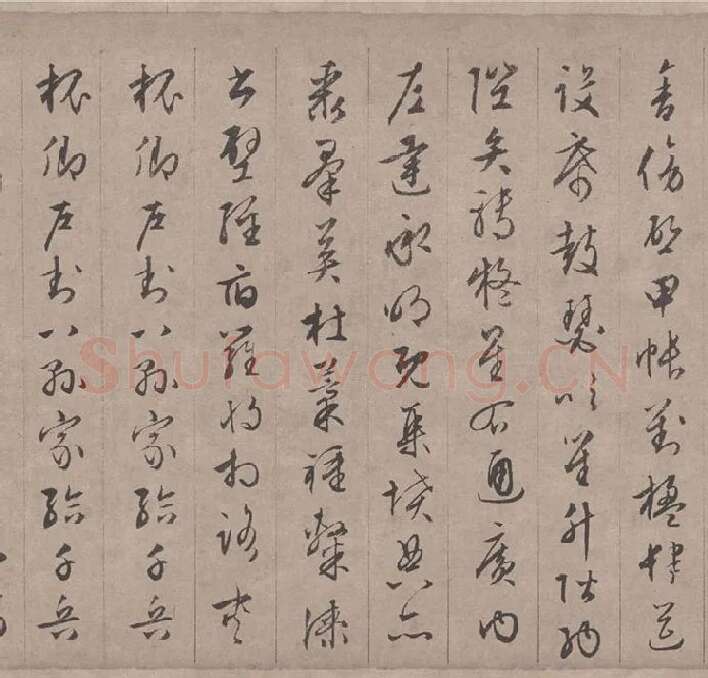 舍傍啓甲帳對楹肆筵
設席鼓瑟吹笙升階納
陛弁轉疑星右通廣內
左達承明既集墳典亦
聚羣英杜藁鍾隸漆
書壁經府羅將相路俠
槐卿戶封八縣家給千兵
槐卿戶封八縣家給千兵
Shufawang.CN